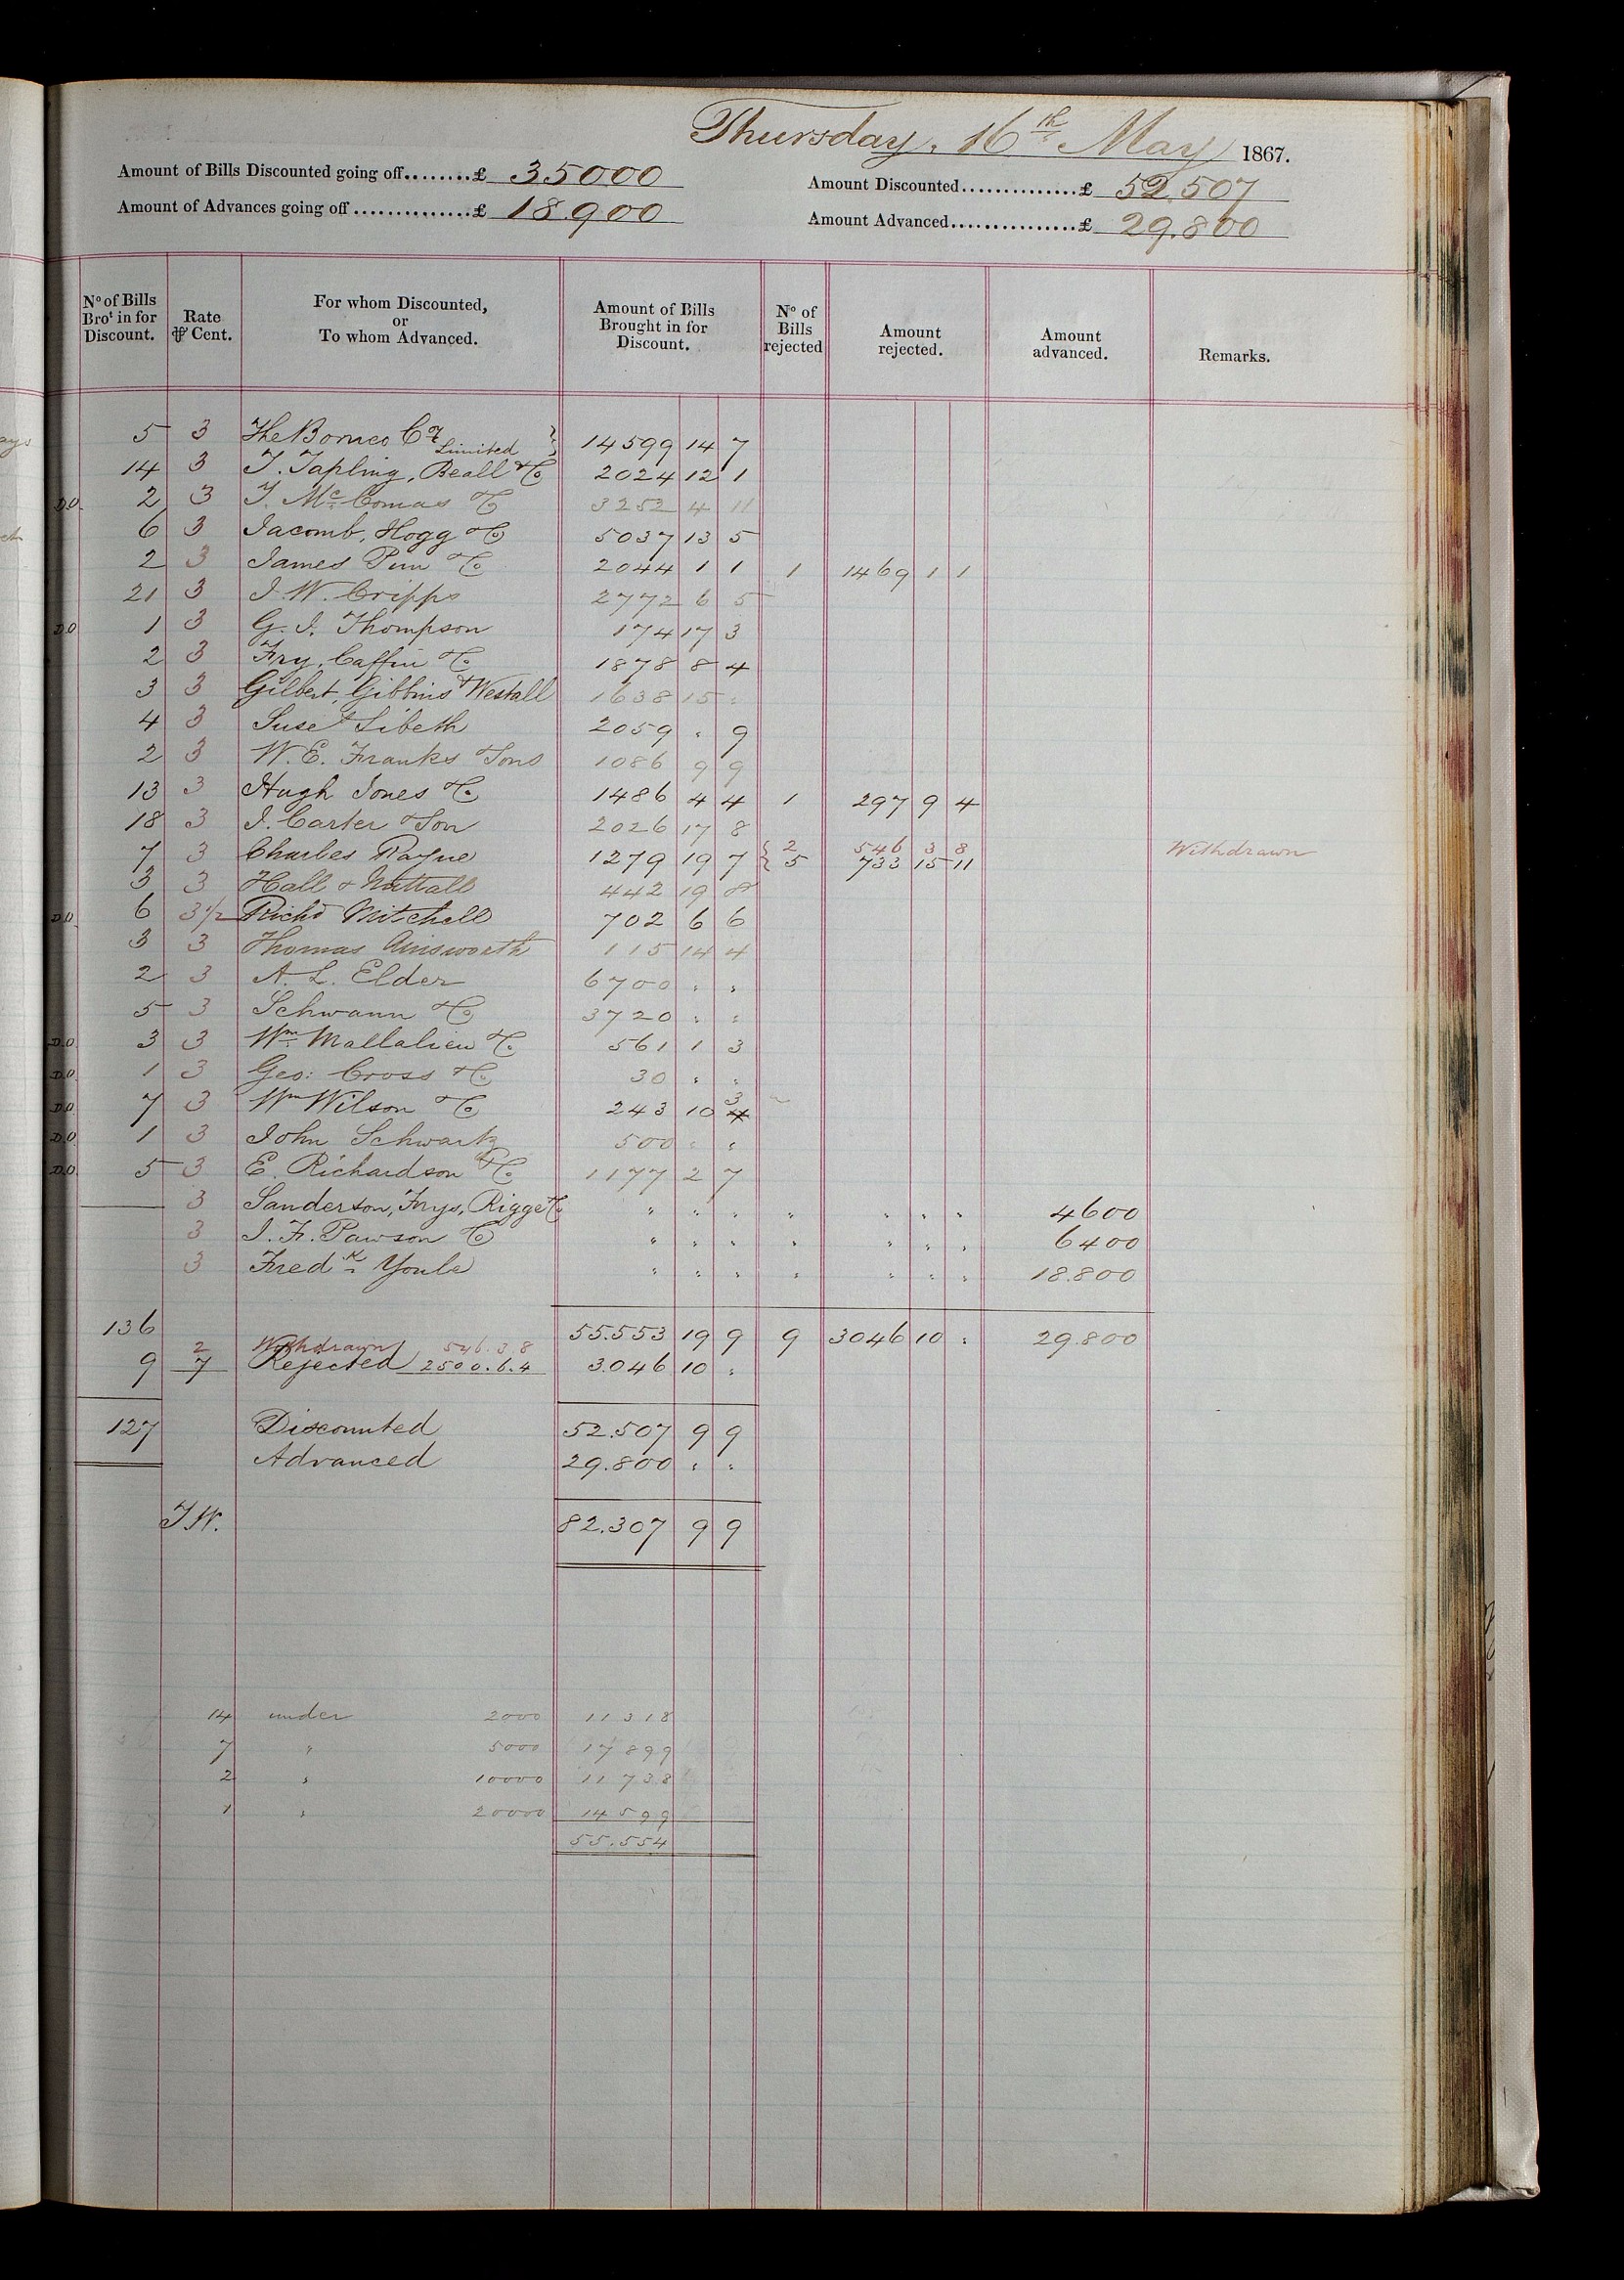 Thursday, 16th May 1867.
Amount of Bills Discounted going off........£ 35000
Amount Discounted..............£ 52.507
Amount of Advances going off...............£ 18.900
Amount Advanced................£ 29.800
No of Bills Brot in for Discount. Rate ⅌ Cent. For whom Discounted, or To whom Advanced. Amount of Bills Brought in for Discount. No of Bills rejected Amount rejected. Amount advanced. Remarks.
5 3 The Borneo Co Limited 14599 14 7
14 3 T. Tapling, Beall & Co 2024 12 1
D.O. 2 3 J. McComas & Co 3252 4 11
6 3 Jacomb, Hogg & Co 5037 13 5
2 3 James Pim & Co 2044 1 1 1 1469 1 1
21 3 J. W. Cripps 2772 6 5
D.O 1 3 G. J. Thompson 174 17 3
2 3 Fry, Caffin & Co 1878 8 4
3 3 Gilbert, Gibbins & Westall 1638 15 "
4 3 Suse & Sibeth 2059 " 9
2 3 W. E. Franks & Sons 1086 9 9
13 3 Hugh Jones & Co 1486 4 4 1 297 9 4
18 3 J. Carter & Son 2026 17 8
2 546 3 8 Withdrawn
7 3 Charles Rayne 1279 19 7 5 733 15 11
3 3 Hall & Nuttall 442 19 8
D.O. 6 3½ Richd Mitchell 702 6 6
3 3 Thomas Ainsworth 115 14 4
2 3 A. L. Elder 6700 " "
5 3 Schwann & Co 3720 " "
D.O. 3 3 Wm Mallalieu & Co 561 1 3
D.O. 1 3 Geo: Cross & Co 30 " "
D.O 7 3 Wm Wilson & Co 243 10 3
D.O. 1 3 John Schwartz 500 " "
D.O. 5 3 E. Richardson & Co 1177 2 7
3 Sanderson, Frys, Rigge & Co " " " " " " " 4600
3 J. F. Pawson & Co " " " " " " " 6400
3 Fredk Youle " " " " " " " 18.800
136 55.553 19 9 9 3046 10 " 29.800
2 Withdrawn 546.3.8
9 7 Rejected 2500.6.4 3.046 10 "
127 Discounted 52.507 9 9
Advanced 29.800 " "
J.W. 82.307 9 9
14 under 2000 11318
7 " 5000 17899
2 " 10000 11738
1 " 20000 14599
55.554